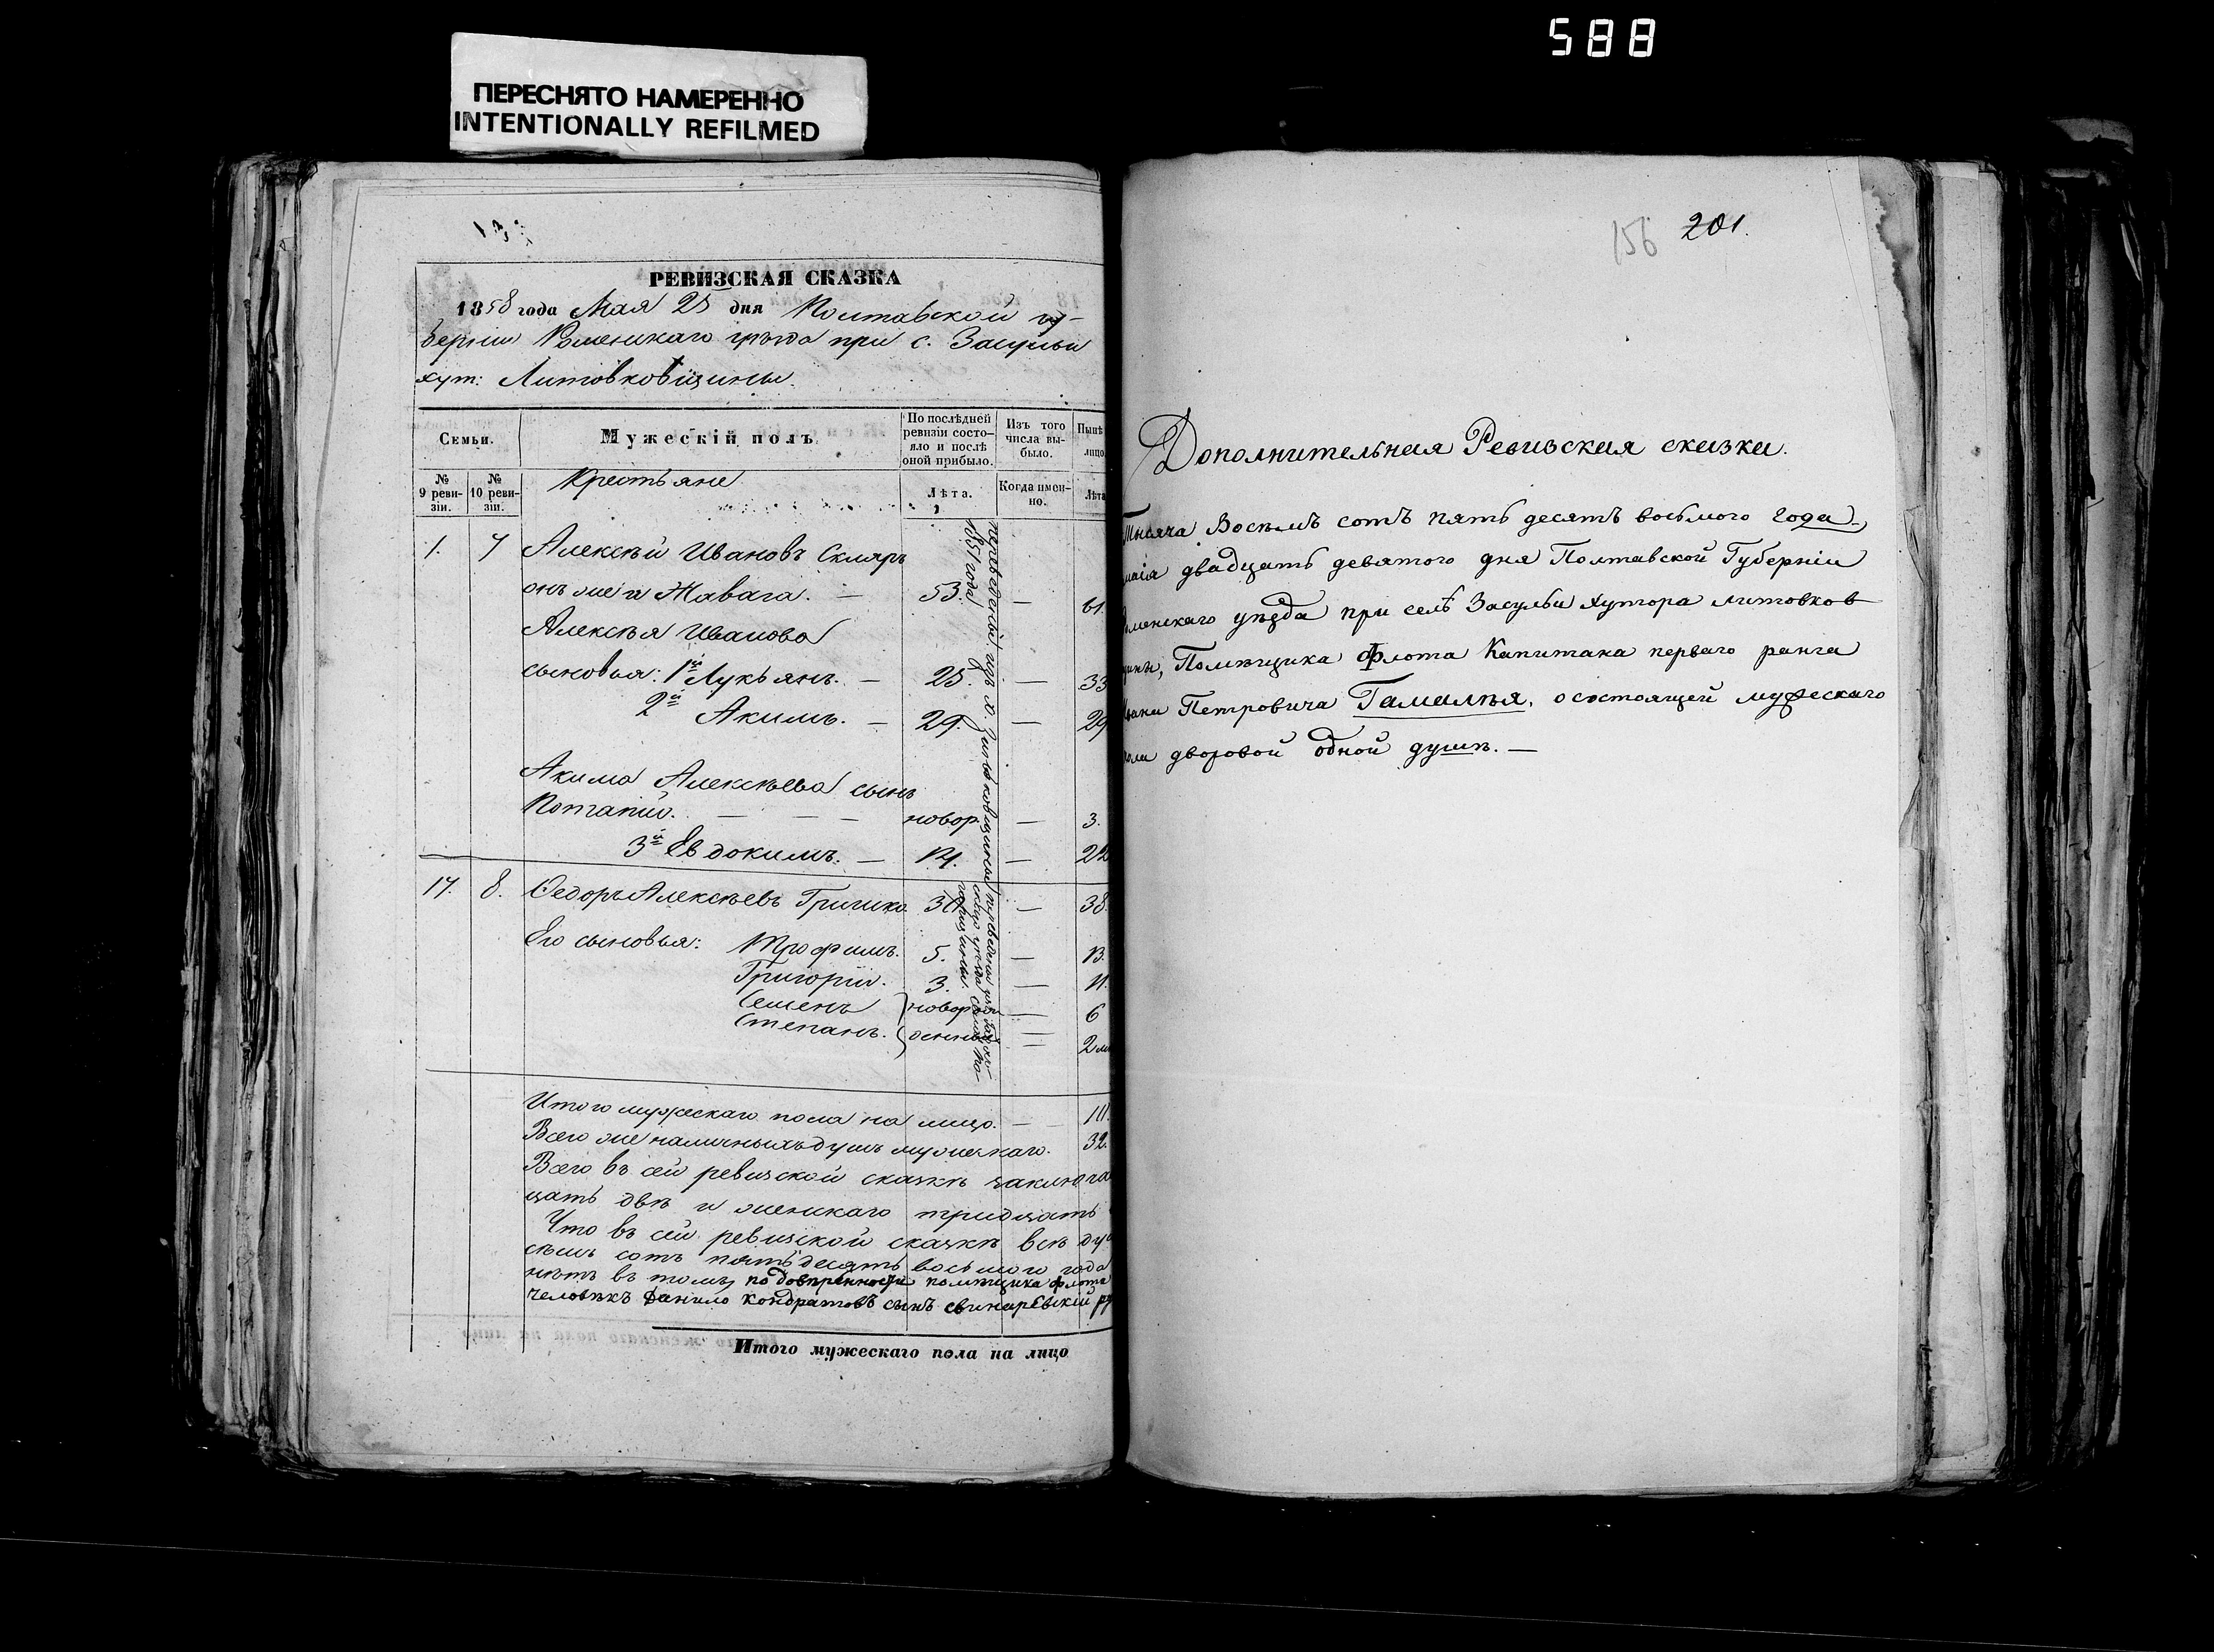 588
ПЕРЕСНЯТО НАМЕРЕННО
INTENTIONALLY REFILMED
РЕВИЗСКАЯ СКАЗКА
1858 года Мая 25 дня Полтавской гу-
берніи Роменскаго уѣзда при с. Засульи
хут: Литовковщины.
Семьи.
Мужескій полъ
По послѣдней ревизіи состо-яло и послѣ оной прибыло.
Изъ того числа вы-было.
Нынѣ лицо
№ 9 реви-зіи.
№ 10 реви-зіи.
Крестьяне
Лѣта.
Когда имен-но.
Лѣта
1. 7 Алексѣй Ивановъ Скляръ
онъ же и Жавага. — 53. — 61.
Алексѣя Иванова
сыновья: 1й Лукьянъ. — 25. — 33
2й Акимъ. — 29. — 29
Акима Алексѣева сынъ
Потапій. — — — новор. — 3.
3й Евдокимъ. — 14. — 22
переведены изъ х.
1851 года
17. 8. Ѳедоръ Алексѣевъ Гришко 30 — 38.
Его сыновья: Трофимъ. 5. — 13.
Григорій. 3. — 11.
Семенъ новорож — 6
Степанъ. денные — 2
переведены изъ
скаго уѣзда села
Итого мужескаго пола на лицо. — —
Всего же наличныхъ душъ мужескаго. 32.
Всего въ сей ревизской сказкѣ заключа
цать двѣ и женскаго тридцать
Что въ сей ревизской сказкѣ всѣ ду
сѣмъ сотъ пятьдесятъ восьмого года
нѣтъ въ томъ, по довѣренности помѣщика флота
человѣкъ Данило Кондратовъ сынъ Свинаревскій ру
Итого мужескаго пола на лицо
156 201.
Дополнительная Ревизская сказка.
Тысяча Восемъ сотъ пять десятъ восьмого года,
маія двадцать девятого дня Полтавской Губерніи
оменскаго уѣзда при селѣ Засульи хутора литовков
щины, Помѣщика Флота Капитана перваго ранга
Ивана Петровича Гамалѣя, о состоящей мужескаго
пола дворовой одной душѣ. —